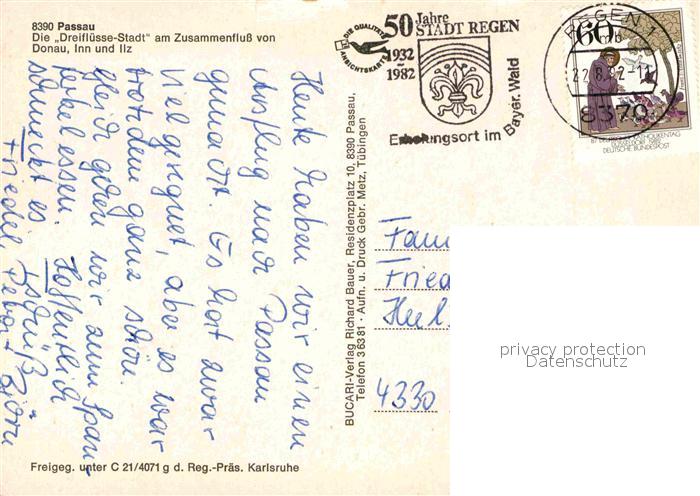 8390 Passau
Die „Dreiflüsse-Stadt" am Zusammenfluß von
Donau, Inn und Ilz
Heute haben wir einen
Ausflug nach Passau
gemacht. Es hat zwar
viel geregnet, aber es war
trotzdem ganz schön.
Gleich gehen wir zum Span-
ferkel essen. Hoffentlich
schmeckt es.
Tschüß
Friedel, Petra + Björn
Freigeg. unter C 21/4071 g d. Reg.-Präs. Karlsruhe
BUCARI-Verlag Richard Bauer, Residenzplatz 10, 8390 Passau,
Telefon 36381 · Aufn. u. Druck Gebr. Metz, Tübingen
DIE QUALITÄTS
ANSICHTSKARTE
50 Jahre
STADT REGEN
1932
-
1982
Erholungsort im Bayer. Wald
REGEN 1
22.8.82-11
8370
60
DÜSSELDORF 1982
DEUTSCHE BUNDESPOST
Fam
Fried
4330
privacy protection
Datenschutz